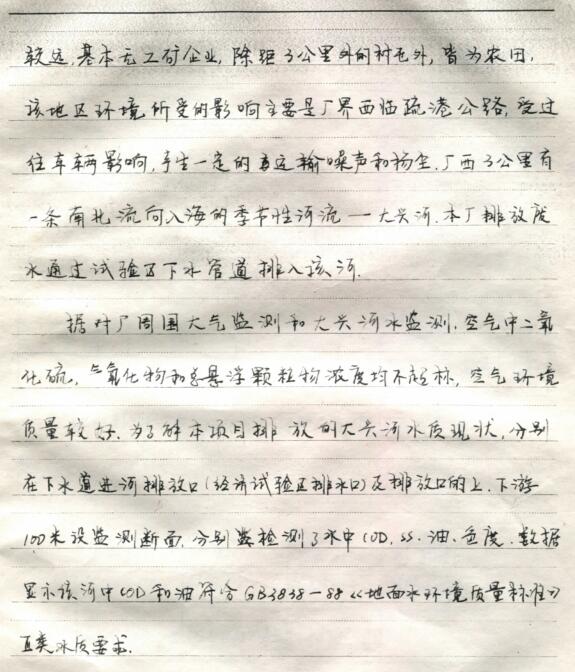 较远,基本无工矿企业,除距3公里外的村屯外,皆为农田,
该地区环境所受的影响主要是厂界西临疏港公路,受过
往车辆影响,产生一定的运输噪声和扬尘.厂西3公里有
一条南北流向入海的季节性河流一大兴河.本厂排放废
水通过试验区下水管道排入该河.
据对厂周围大气监测和大兴河水监测.空气中二氧
化硫,气氧化物和总悬浮颗粒物浓度均不超标,空气环境
质量较好.为了解本项目排放的大兴河水质现状,分别
在下水道进河排放口(经济试验区排水口)及排放口的上.下游
100米设监测断面,分别检测了水中COD,SS.油.色度.数据
显示该河中COD和油符合GB3838-88《地面水环境质量标准》
类水质要求.